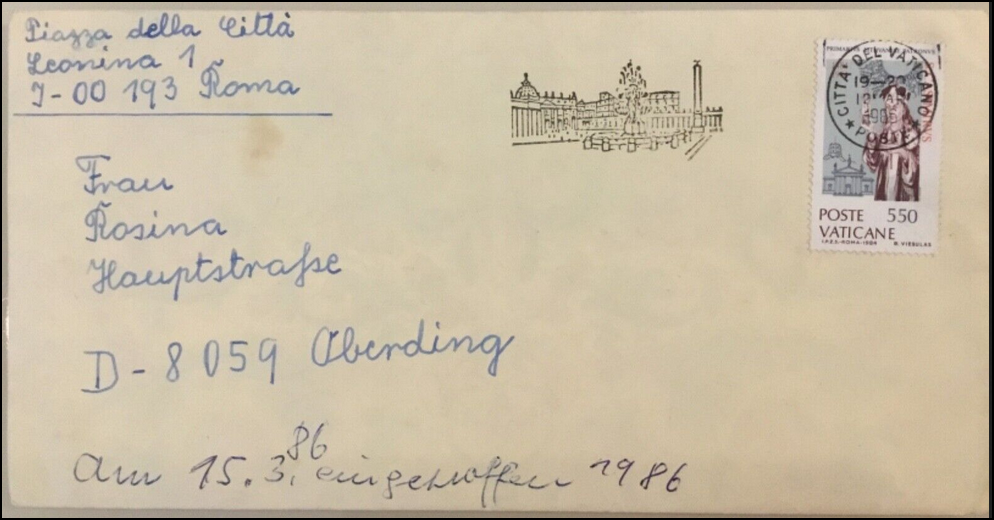 Piazza della Città
Leonina 1
I-00 193 Roma
CITTA' DEL VATICANO
19-20
POSTE
POSTE 550
VATICANE
I.P.Z.S.-ROMA-1984 R. VIESULAS
Frau
Rosina
Hauptstraße
D-8059 Oberding
Am 15.3.86 eingetroffen 1986